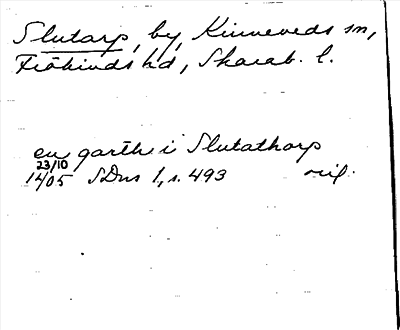 Slutarp, by, Kinneveds sn,
Frökinds hd, Skarab. l.
en garthe i Slutathorp
23/10
1405 SDns 1, s. 493 orig.